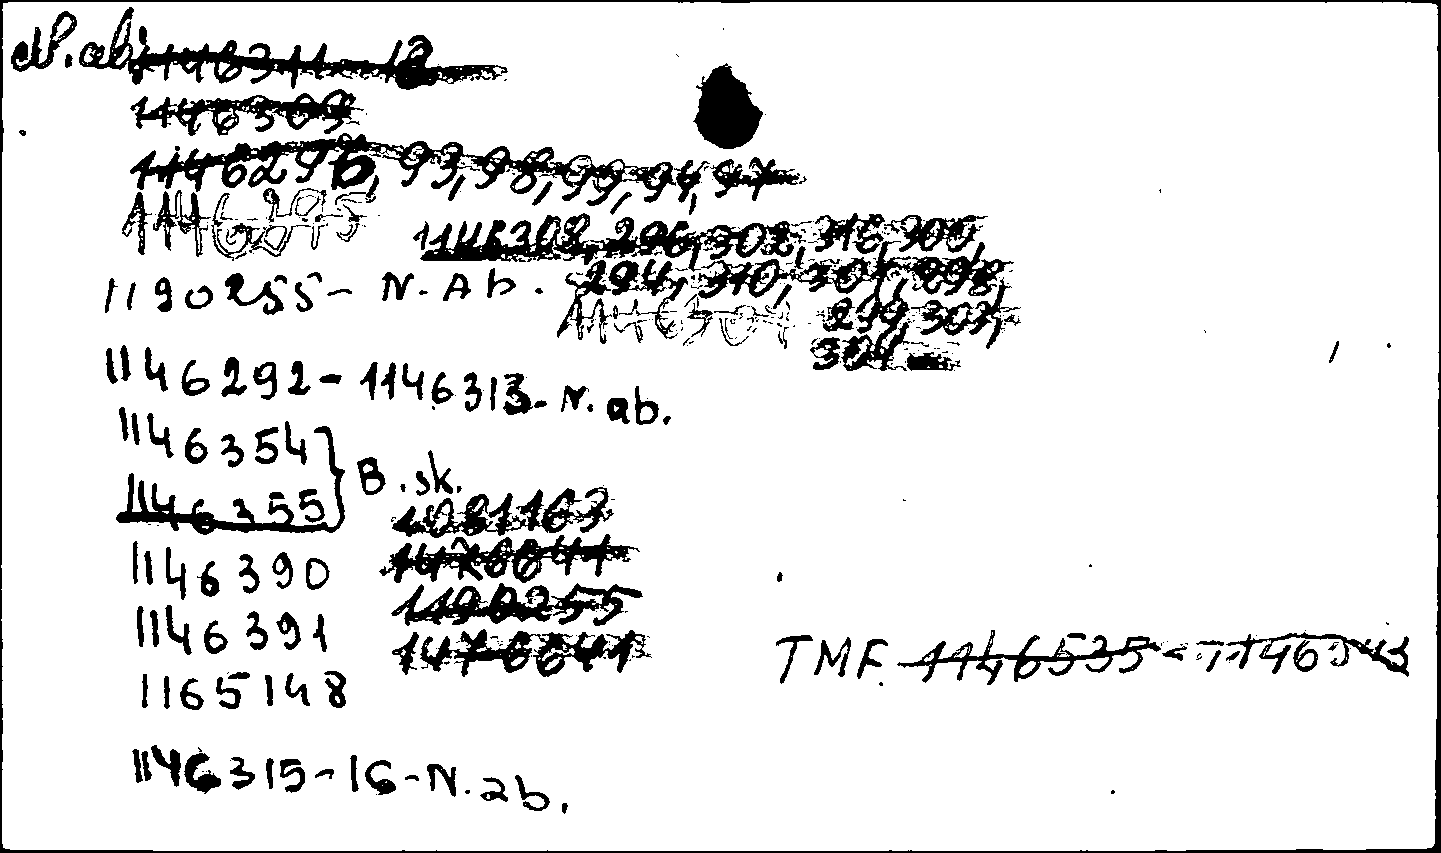 N.ab. 1146311-12
1146309
1146295, 93, 98, 99, 94, 97
1146295
1146308, 296, 302, 316, 300,
1190255- N. Ab. 294, 310, 301, 298,
1146307 299, 303,
304 -
1146292-1146313- N. ab.
1146354
1146355 } B. sk.
1081163
1146390
1476641
1146391
1190255
1476641
TMF. 1146535
1165148
1146315-16-N.ab.